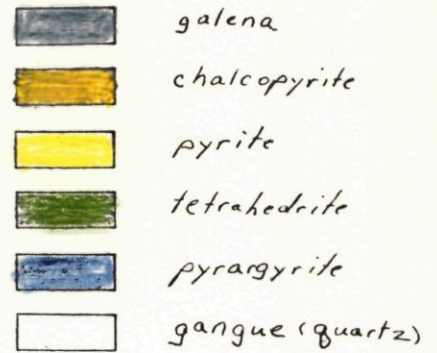 galena
chalcopyrite
pyrite
tetrahedrite
pyrargyrite
gangue (quartz)